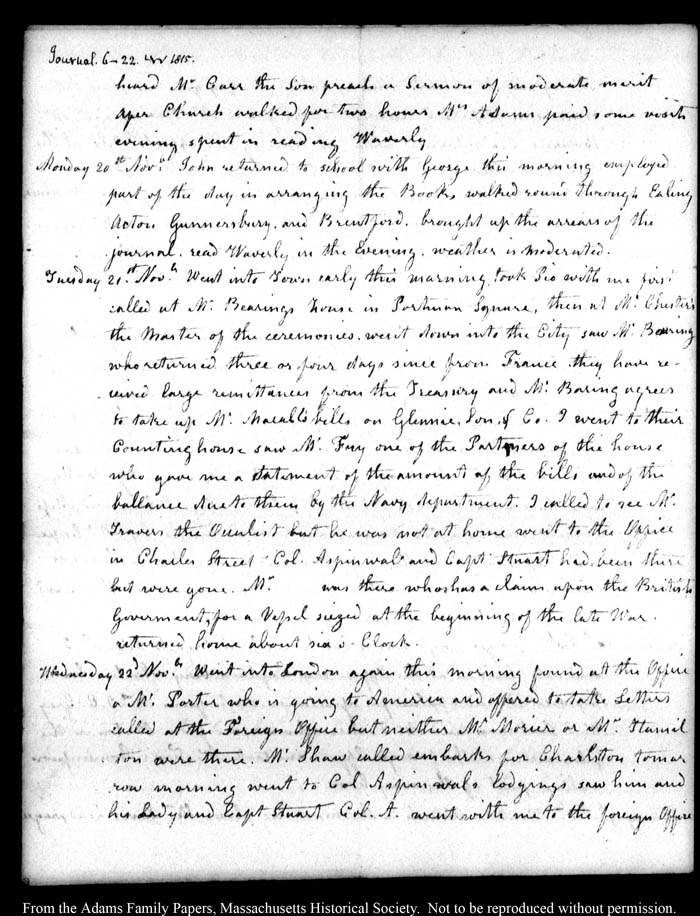 Journal. 6–22. Nov 1815.
heard Mr. Carr the Son preach a Sermon of moderate merit
after Church walked for two hours Mrs Adams paid some visits
evening spent in reading Waverly
Monday 20th Novr. John returned to school with George this morning employed
part of the day in arranging the Books, walked round through Ealing
Acton Gunnersbury, and Brentford. brought up the arrears of the
journal. read Waverly in the Evening. weather is moderated.
Tuesday 21st Novr. Went into Town early this morning, took with me first
called at Mr. Bearings house in Portman Square, then at Mr. Chester's
the Master of the ceremonies. went down into the City saw Mr. Bearing
who returned three or four days since from France they have re-
ceived large remittances from the Treasury and Mr. Baring agrees
to take up Mr. bills on Glennie, Son, & Co. I went to their
Countinghouse saw Mr. Fry one of the Partners of the house
who gave me a statement of the amount of the bills and of the
ballance due to them by the Navy department. I called to see Mr.
Travers the Oculist but he was not at home went to the Office
in Charles Street Col. Aspinwal and Capt Stuart had been there
but were gone. Mr. was there who has a claim upon the British
Goverment, for a Vessel siezed at the beginning of the late War.
returned home about six o Clock.
Wednesday 22d Novr. Went into London again this morning found at the Office
a Mr. Porter who is going to America and offered to take Letters
called at the Foreign Office but neither Mr. Morier or Mr. Hamil
ton were there. Mr. Shaw called embarks for Charlston tomor
row morning went to Col Aspinwals lodgings saw him and
his Lady and Capt Stuart Col. A. went with me to the foreign Office
From the Adams Family Papers, Massachusetts Historical Society. Not to be reproduced without permission.